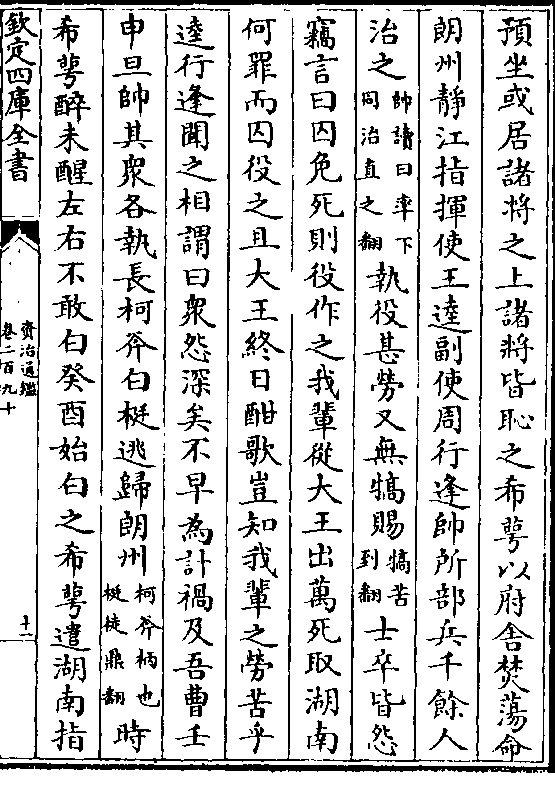 預坐或居諸將之上諸將皆恥之希萼以府舍焚蕩命
朗州靜江指揮使王逵副使周行逢帥所部兵千餘人
治之帥讀曰率下同治直之翻執役甚勞又無犒賜犒苦到翻士卒皆怨
竊言曰囚免死則役作之我輩從大王出萬死取湖南
何罪而囚役之且大王終日酣歌豈知我輩之勞苦乎
逵行逢聞之相謂曰衆怨深矣不早為計禍及吾曹壬
申旦帥其衆各執長柯斧白梃逃歸朗州柯斧柄也梃徒鼎翻時
希萼醉未醒左右不敢白癸酉始白之希萼遣湖南指
欽定四庫全書
資治通鑑
卷二百九十
十一